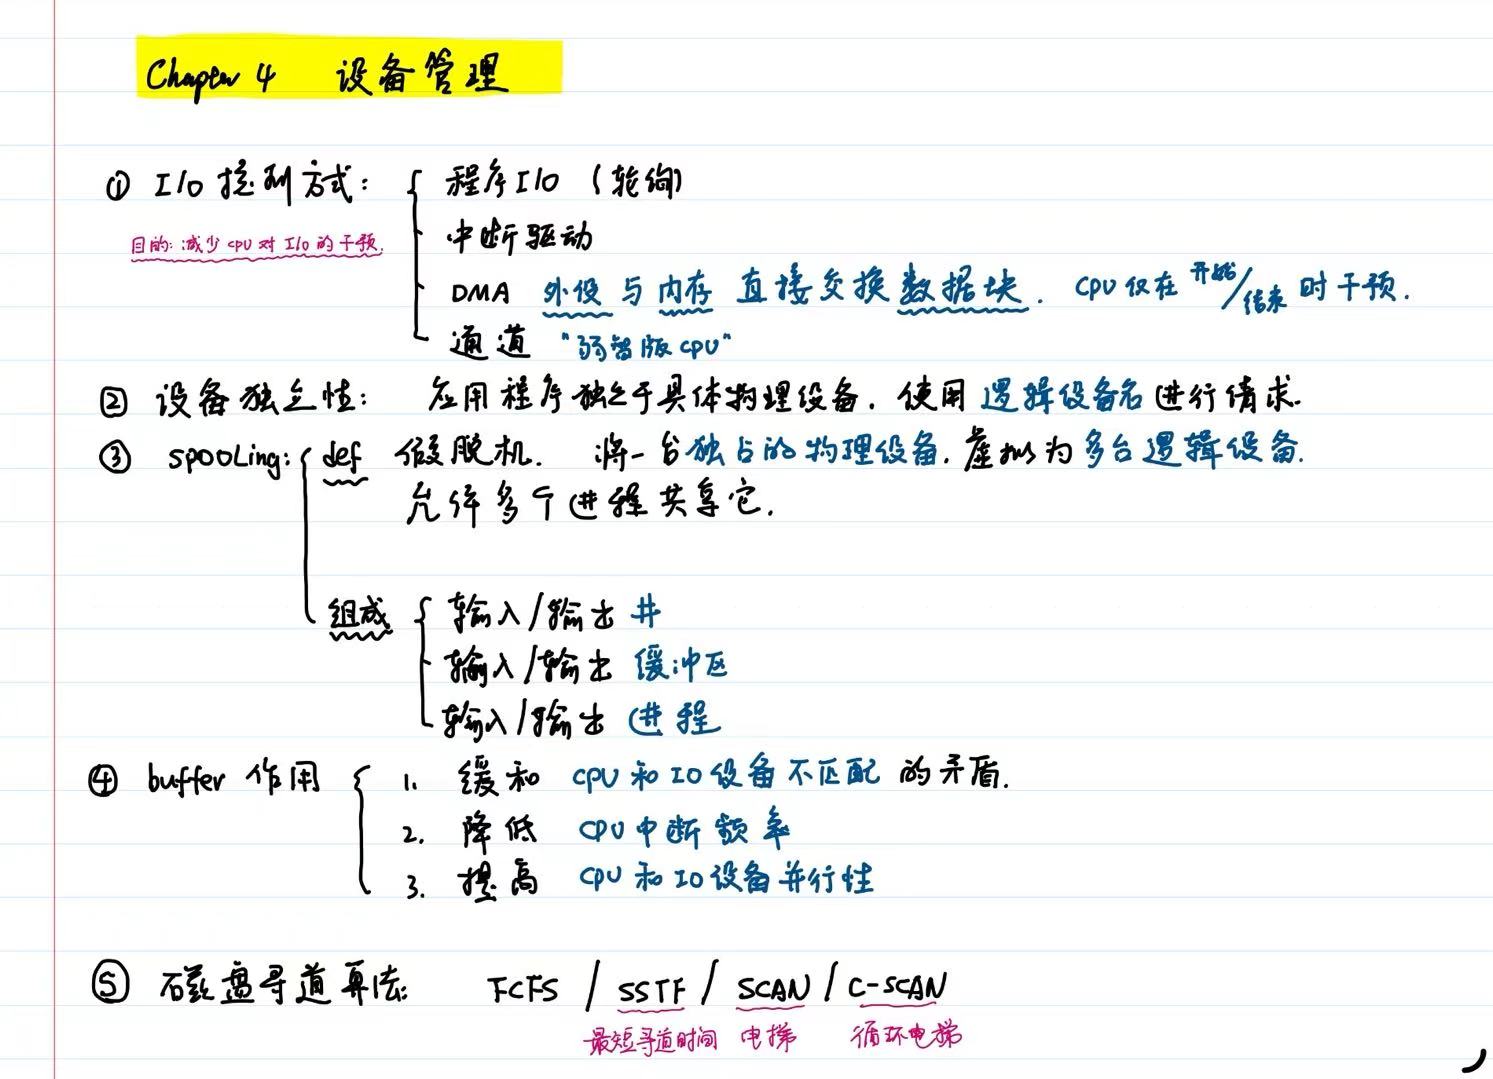 Chapter 4 设备管理
① I/O 控制方式： 程序I/O （轮询）
目的：减少CPU对I/O的干预.
中断驱动
DMA 外设与内存 直接交换数据块. CPU仅在开始/结束时干预.
通道 "弱智版CPU"
② 设备独立性： 应用程序独立于具体物理设备. 使用逻辑设备名进行请求.
③ SPOOLing： def 假脱机. 将一台独占的物理设备. 虚拟为多台逻辑设备.
允许多个进程共享它.
组成 输入/输出 井
输入/输出 缓冲区
输入/输出 进程
④ buffer 作用 1. 缓和 CPU和IO设备不匹配 的矛盾.
2. 降低 CPU中断频率
3. 提高 CPU和IO设备并行性
⑤ 磁盘寻道算法： FCFS / SSTF / SCAN / C-SCAN
最短寻道时间 电梯 循环电梯